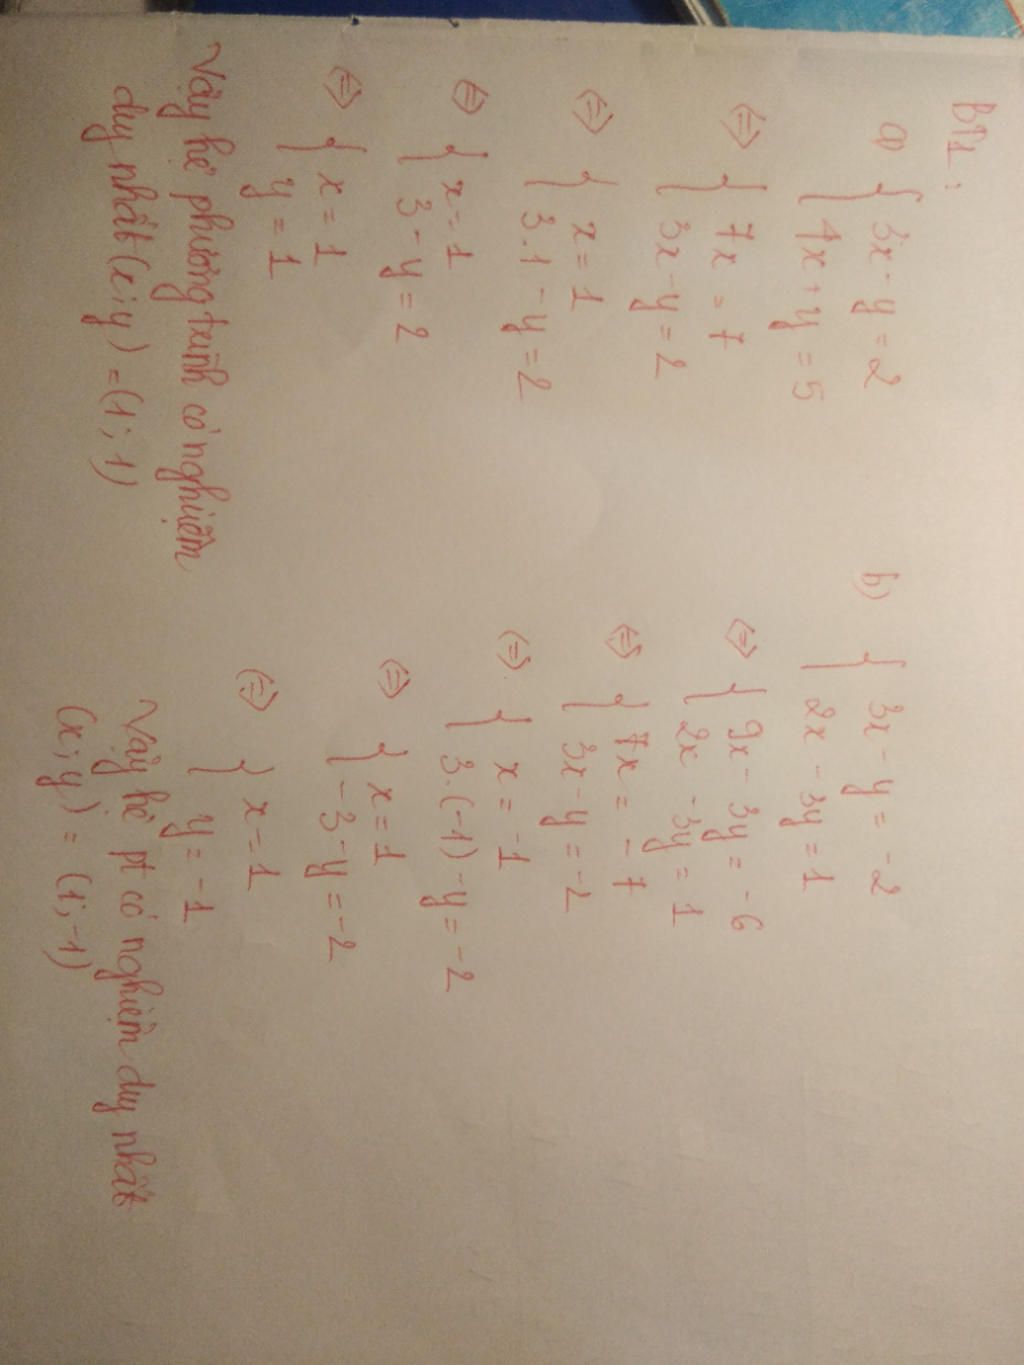 BT1:
a) { 3x - y = 2
4x + y = 5
<=> { 7x = 7
3x - y = 2
<=> { x = 1
3.1 - y = 2
<=> { x = 1
3 - y = 2
<=> { x = 1
y = 1
Vậy hệ phương trình có nghiệm
duy nhất (x; y) = (1; 1)
b) { 3x - y = -2
2x - 3y = 1
<=> { 9x - 3y = -6
2x - 3y = 1
<=> { 7x = -7
3x - y = -2
<=> { x = -1
3.(-1) - y = -2
<=> { x = 1
-3 - y = -2
<=> { x = 1
y = -1
Vậy hệ pt có nghiệm duy nhất
(x; y) = (1; -1)